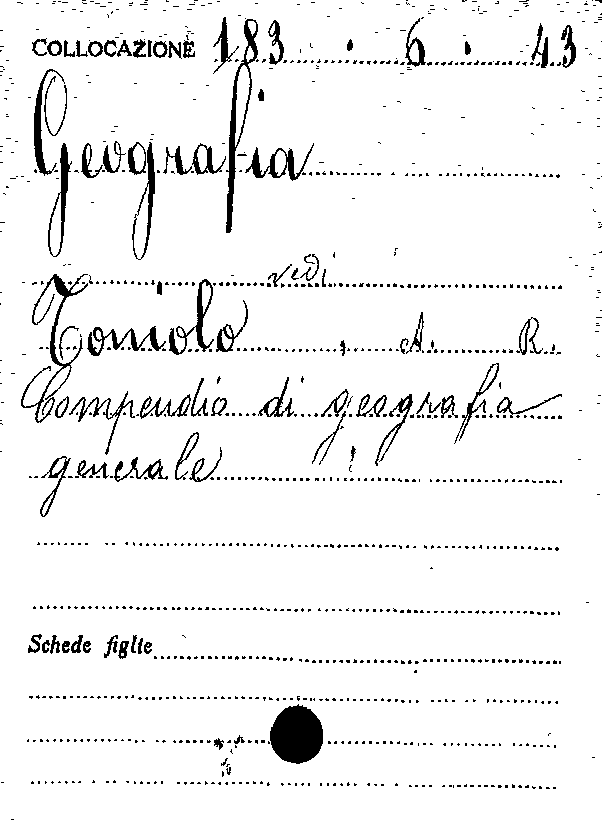 COLLOCAZIONE 183 . 6 . 43
Geografia
vedi
Toniolo, A. R.
Compendio di geografia
generale
Schede figlie